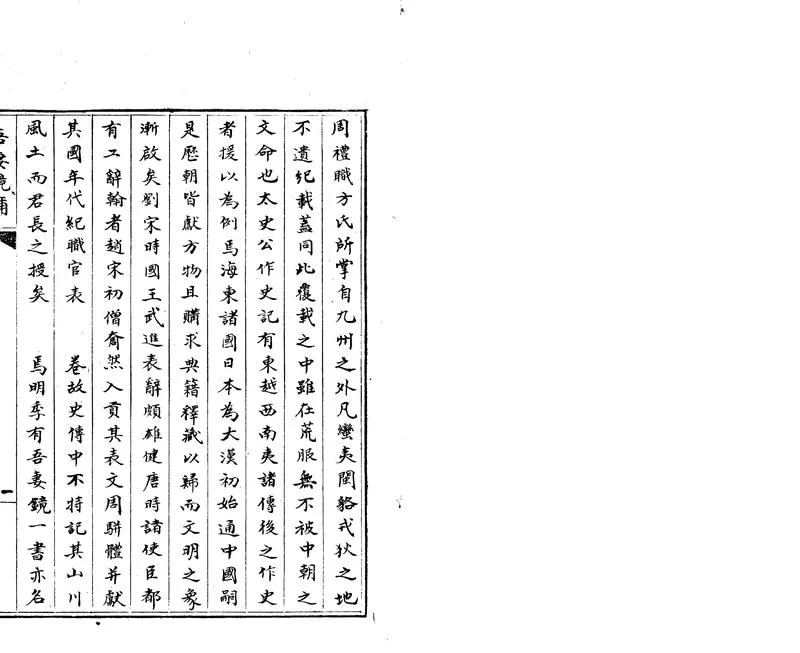 周禮職方氏所掌自九州之外凡蠻夷閩貉戎狄之地
不遺紀載蓋同此覆載之中雖在荒服無不被中朝之
文命也太史公作史記有東越西南夷諸傳後之作史
者援以為例焉海東諸國日本為大漢初始通中國嗣
是歷朝皆獻方物且購求典籍釋藏以歸而文明之象
漸啟矣劉宋時國王武進表辭頗雄健唐時諸使臣都
有工辭翰者趙宋初僧奝然入貢其表文周駢體并獻
其國年代紀職官表　卷故史傳中不特記其山川
風土而君長之授矣　焉明季有吾妻鏡一書亦名
吾妻鏡補
一